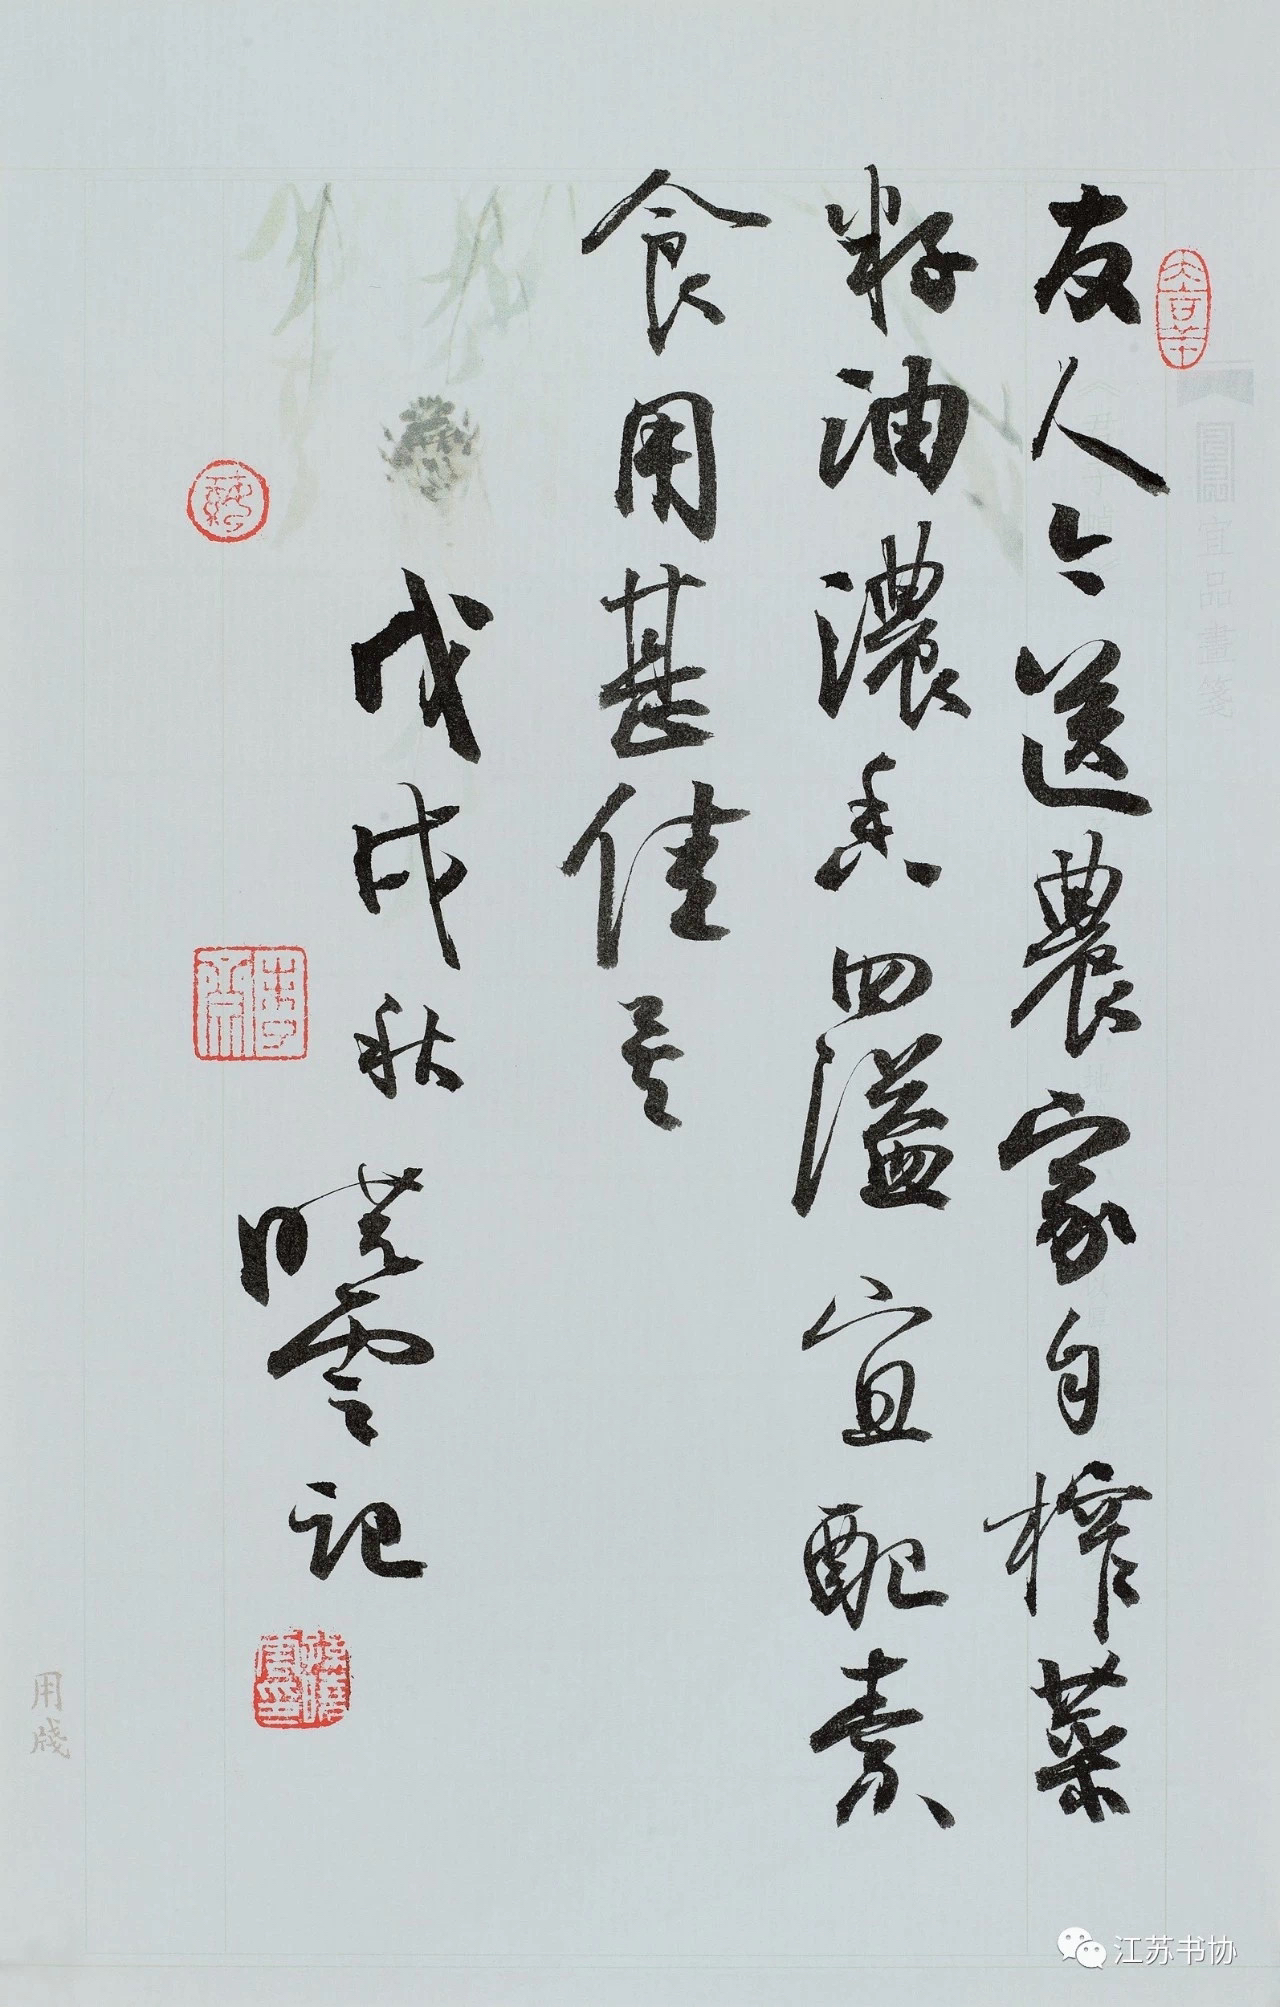 友人今送農家自榨菜
籽油濃香四溢宜配素
食用甚佳矣
戊戌秋曉雲記
宜品畫箋
用牋
江苏书协